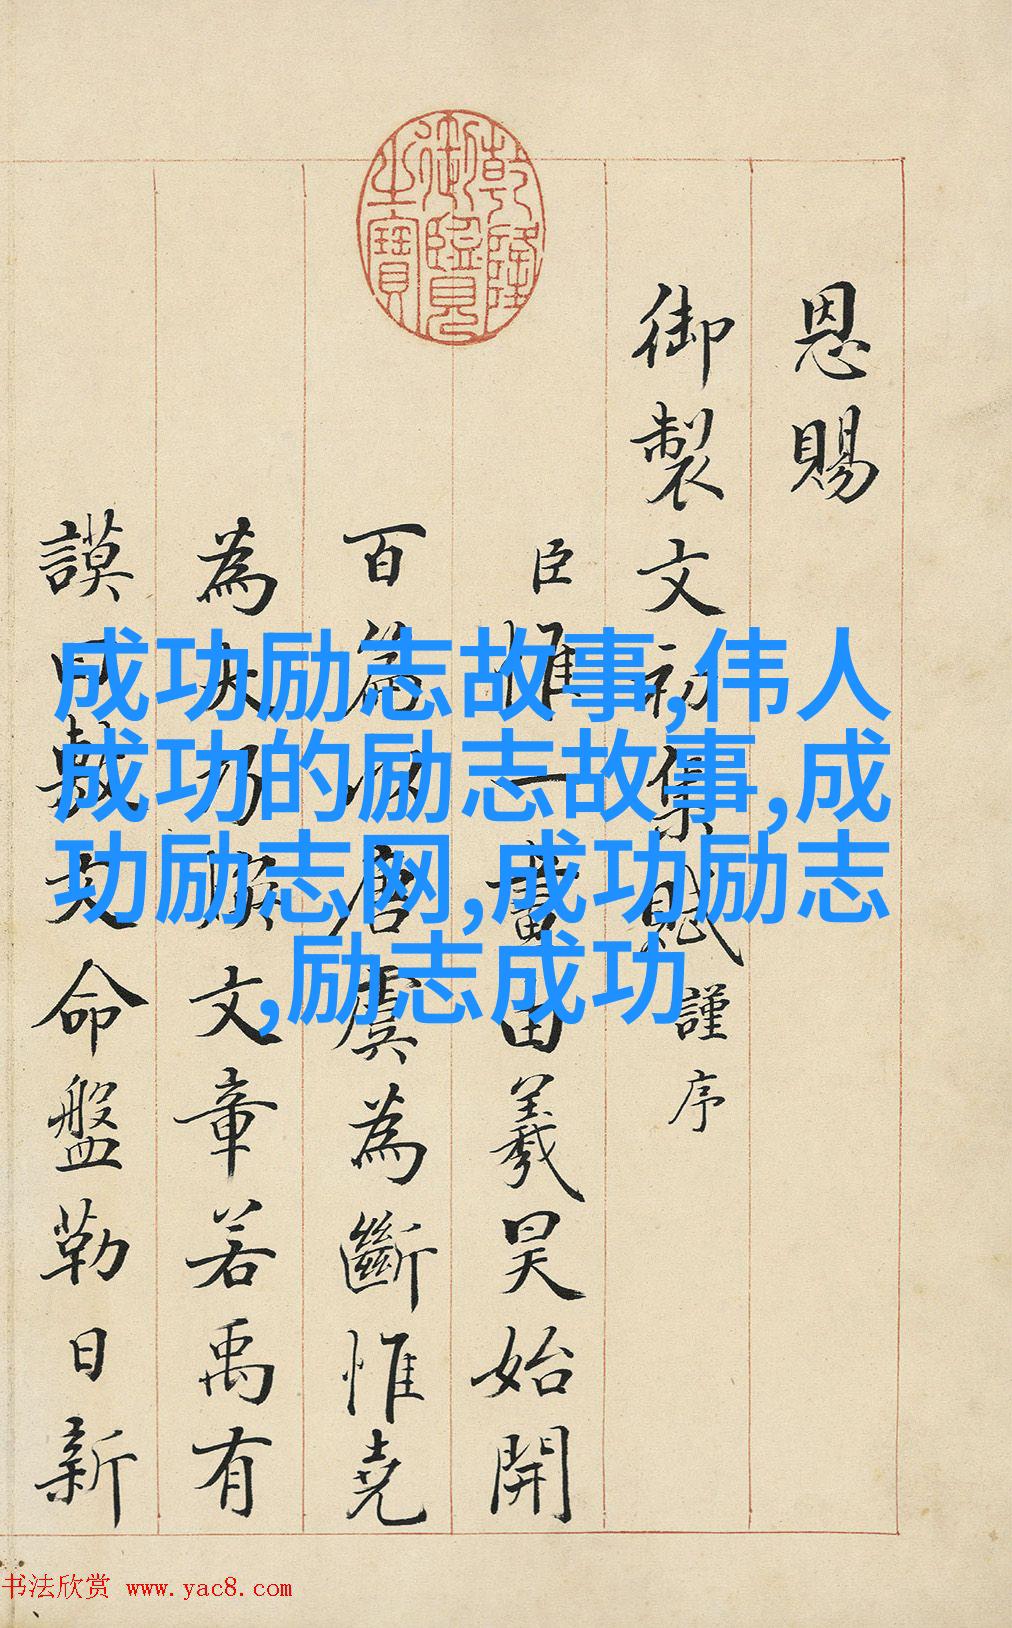 乾隆御覽之寶
恩賜
御製文初集賦謹序
臣惟一畫由羲昊始開
百篇以唐虞為斷惟堯
為大乃煥文章若禹有
謨曰敷文命盤勒日新
成功励志故事,伟人
成功的励志故事,成
功励志网,成功励志
,励志成功
书法欣赏 www.yac8.com